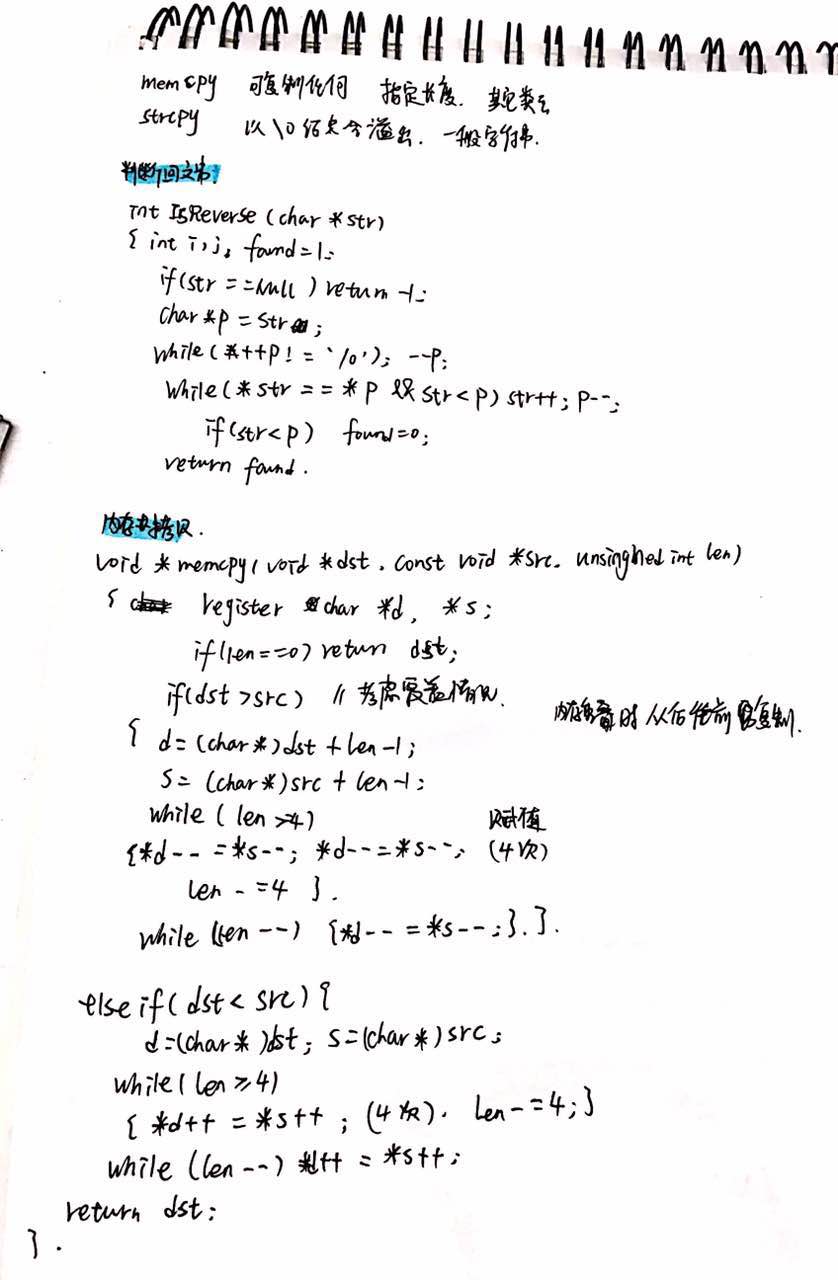 memcpy 可复制任何 指定长度. 其它类型
strcpy 以\0结束会溢出. 一般字符串.
判断回文串:
int IsReverse (char *str)
{ int i,j, found=1;
if(str ==null) return -1;
char *p = str ;
while(*++p! = '/0'); --p;
while(*str == *p && str<p) str++; p--;
if(str<p) found=0;
return found.
内存拷贝.
void * memcpy( void *dst, const void *src, unsinghed int len)
{ register char *d, *s;
if(len==0) return dst;
if(dst >src) // 考虑覆盖情况.
内存覆盖时 从后往前 复制.
{ d=(char*)dst + len-1;
s= (char*)src + len-1;
while ( len ≥4) 赋值
{*d-- =*s--; *d--=*s--; (4次)
len - =4 }.
while (len --) {*d-- = *s--;}.}.
else if( dst < src) {
d=(char*)dst; s=(char*)src;
while( len ≥4)
{ *d++ = *s++ ; (4次). len-=4;}
while (len --) *d++ = *s++;
return dst;
} .